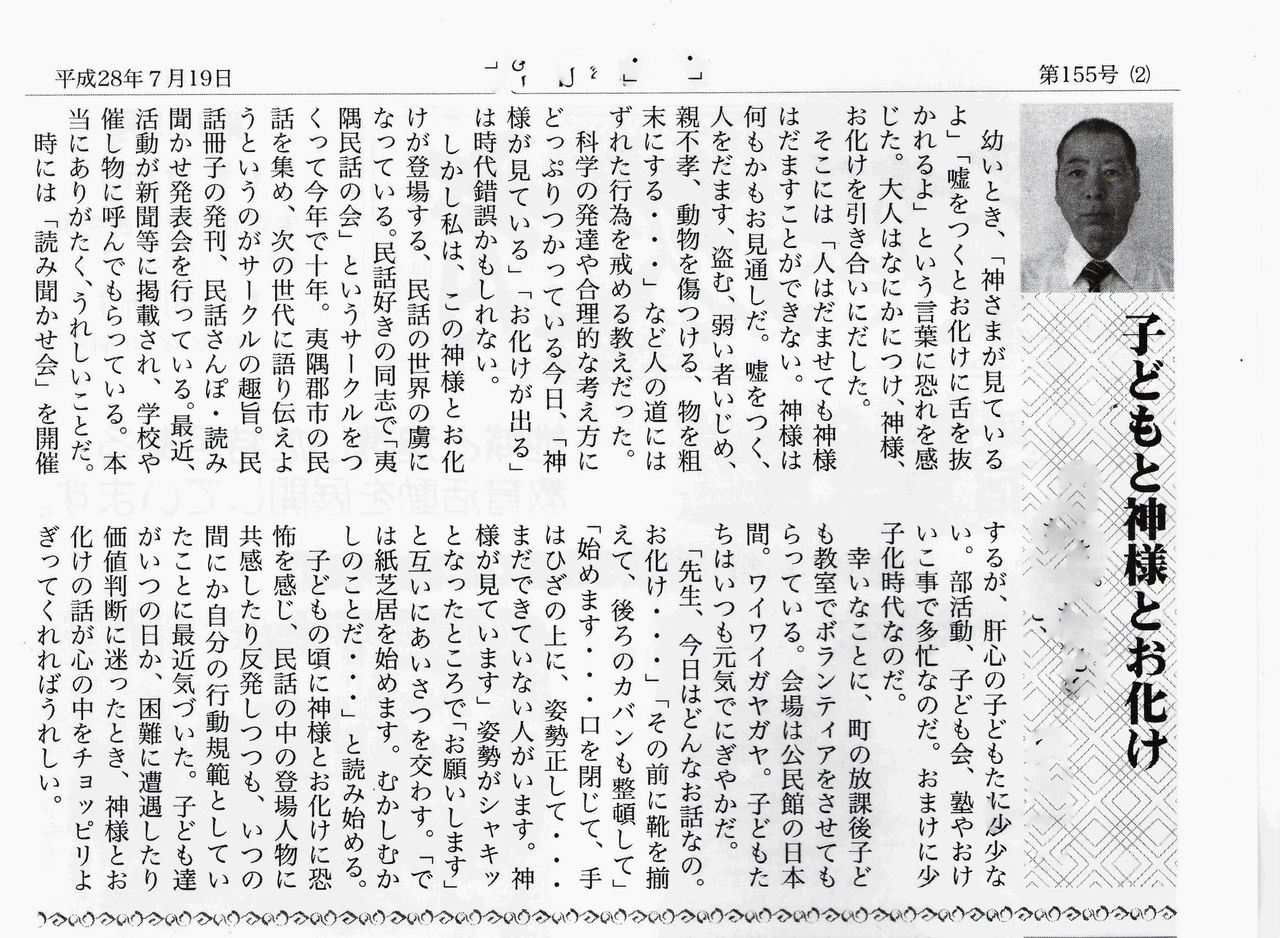 平成28年7月19日
第155号 (2)
子どもと神様とお化け
幼いとき、「神さまが見ている
よ」「嘘をつくとお化けに舌を抜
かれるよ」という言葉に恐れを感
じた。大人はなにかにつけ、神様、
お化けを引き合いにだした。
そこには「人はだませても神様
はだますことができない。神様は
何もかもお見通しだ。嘘をつく、
人をだます、盗む、弱い者いじめ、
親不孝、動物を傷つける、物を粗
末にする・・・」など人の道には
ずれた行為を戒める教えだった。
科学の発達や合理的な考え方に
どっぷりつかっている今日、「神
様が見ている」「お化けが出る」
は時代錯誤かもしれない。
しかし私は、この神様とお化
けが登場する、民話の世界の虜に
なっている。民話好きの同志で「夷
隅民話の会」というサークルをつ
くって今年で十年。夷隅郡市の民
話を集め、次の世代に語り伝えよ
うというのがサークルの趣旨。民
話冊子の発刊、民話さんぽ・読み
聞かせ発表会を行っている。最近、
活動が新聞等に掲載され、学校や
催し物に呼んでもらっている。本
当にありがたく、うれしいことだ。
時には「読み聞かせ会」を開催
するが、肝心の子どもたに少少な
い。部活動、子ども会、塾やおけ
いこ事で多忙なのだ。おまけに少
子化時代なのだ。
幸いなことに、町の放課後子ど
も教室でボランティアをさせても
らっている。会場は公民館の日本
間。ワイワイガヤガヤ。子どもた
ちはいつも元気でにぎやかだ。
「先生、今日はどんなお話なの。
お化け・・・」「その前に靴を揃
えて、後ろのカバンも整頓して」
「始めます・・・口を閉じて、手
はひざの上に、姿勢正して・・・
まだできていない人がいます。神
様が見ています」姿勢がシャキッ
となったところで「お願いします」
と互いにあいさつを交わす。「で
は紙芝居を始めます。むかしむか
しのことだ・・・」と読み始める。
子どもの頃に神様とお化けに恐
怖を感じ、民話の中の登場人物に
共感したり反発しつつも、いつの
間にか自分の行動規範としてい
たことに最近気づいた。子ども達
がいつの日か、困難に遭遇したり
価値判断に迷ったとき、神様とお
化けの話が心の中をチョッピリよ
ぎってくれればうれしい。